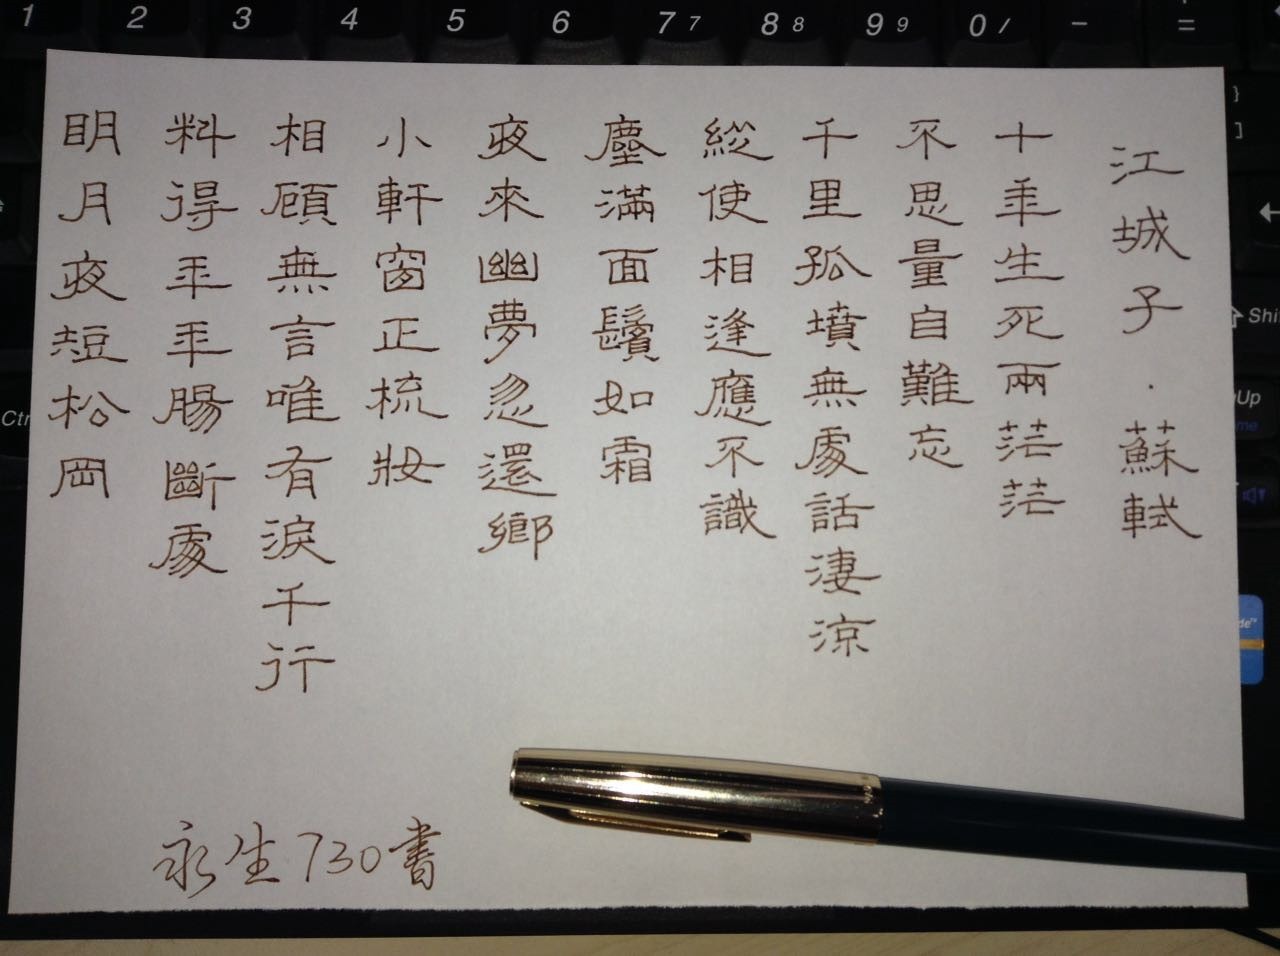 江城子·蘇軾
十年生死兩茫茫
不思量自難忘
千里孤墳無處話淒涼
縱使相逢應不識
塵滿面鬢如霜
夜來幽夢忽還鄉
小軒窗正梳妝
相顧無言唯有淚千行
料得年年腸斷處
明月夜短松岡
永生730書
1 2 3 4 5 6 7 7 8 8 9 9 0 / - =
} ]
Shi
Ctr